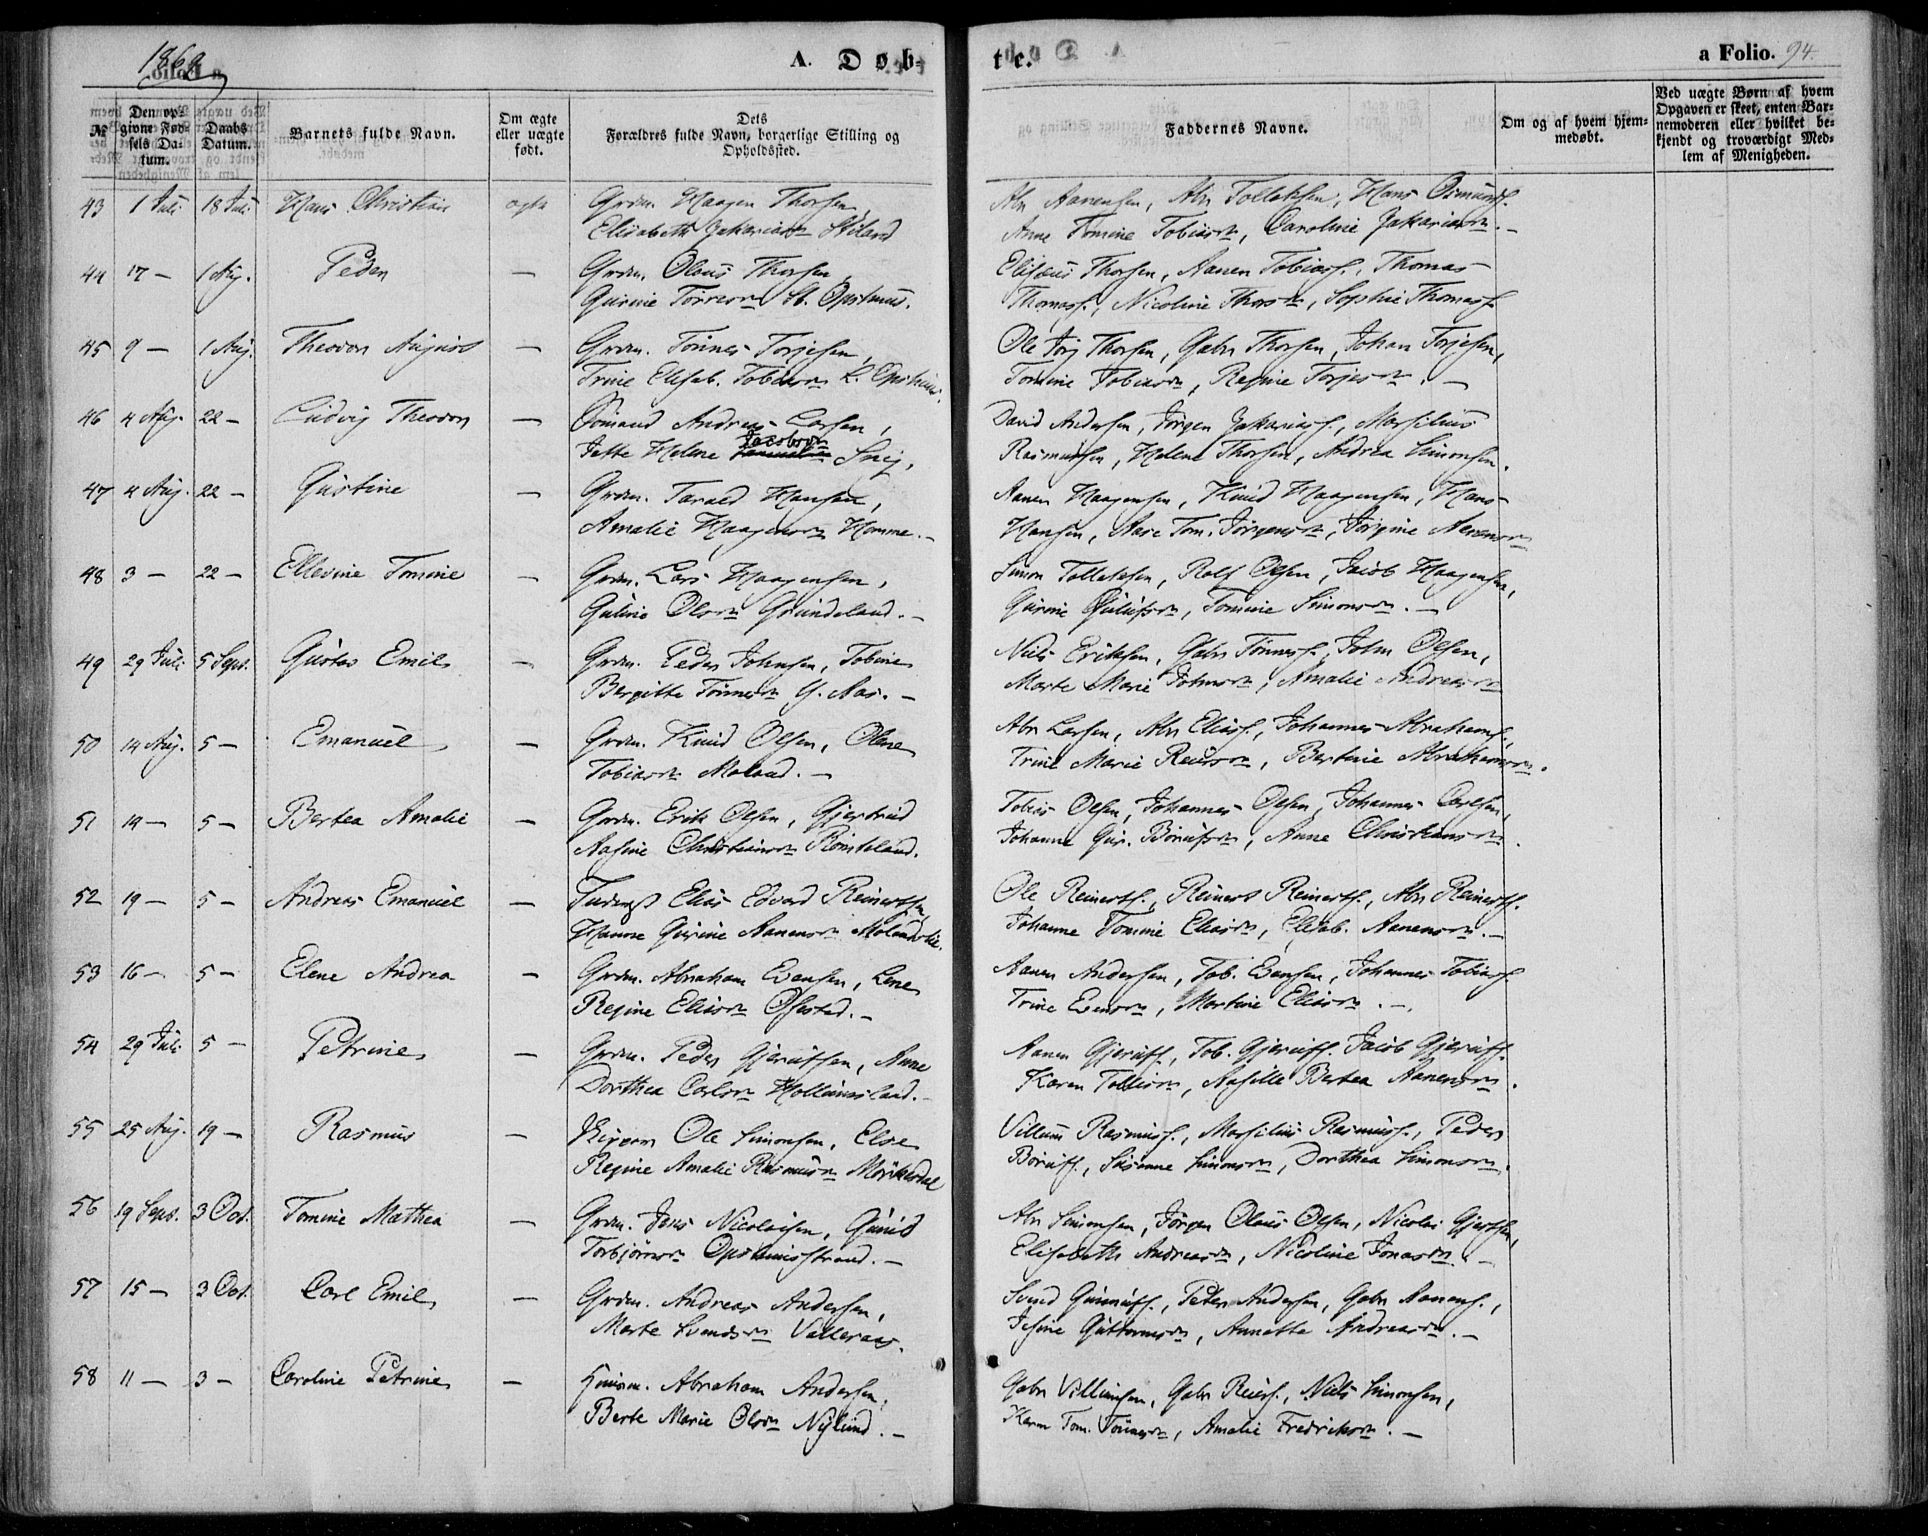 1869
A. Døb-
te.
a Folio. 94.
№
Den op-
givne Fød-
sels Da-
tum.
Daabs
Datum.
Barnets fulde Navn.
Om ægte
eller uægte
født.
Dets
Forældres fulde Navn, borgerlige Stilling og
Opholdssted.
Faddernes Navne.
Om og af hvem hjem-
medøbt.
Ved uægte Børn af hvem
Opgaven er skeet, enten Bar-
nemoderen eller hvilket be-
kjendt og troværdigt Med-
lem af Menigheden.
43 1 Juli 18 Juli Hans Christian ægte Grdm. Haagen Thorsen,
Elisabeth Zakariasd. Skiland
Abr Aanensen, Abr Tollaksen, Hans Osmunds.
Anne Tomine Tobiasd., Caroline Zakariasd. -
44 17 - 1 Aug. Peder - Grdm. Olaus Thorsen,
Gurine Torresd. St. Opstmus.
Elisæus Thorsen, Aanen Tobiass., Thomas
Thomass., Nicoline Thorsd., Sophie Thomass.
45 9 - 1 Aug. Theodor August - Grdm. Tönnes Torjesen,
Trine Elisab. Tobiasd. L.
Ole Torj Thorsen, Gabr Thorsen, Johan Torjesen,
Tomine Tobiasd., Regine Torjesd. -
46 4 Aug. 22 - Ludvig Theodor - Sömand Andreas Larsen,
Jette Helene Jacobsd. Snig,
David Andersen, Jörgen Zakariass., Marsilius
Rasmusen, Helene Thorsen, Andrea Simonsen.
47 4 Aug. 22 - Gustine - Grdm. Tarald Hansen,
Amalie Haagensd. Homme. -
Aanen Haagensen, Knud Haagensen, Hans
Hansen, Aase Tom. Jörgensd., Jörgine Aanensd.
48 3 - 22 - Ellevine Tomine - Grdm. Lars Haagensen,
Guline Olsd. Grundeland. -
Simon Tollaksen, Rolf Olsen, Jacob Haagensen,
Gurine Gulufsd., Tomine Simonsd. -
49 29 Juli 5 Sept. Gustav Emil - Grdm. Peder Johnsen, Tobine
Bergitte Tönnesd. Y. Aas. -
Niels Eriksen, Gabr Tönness, John Olsen,
Marte Marie Johnsd., Amalie Andreasd.
50 14 Aug. 5 - Emanuel - Grdm. Knud Olsen, Olene
Tobiasd. Moland. -
Abr Larsen, Abr Eliass., Johannes Abrahams.,
Trine Marie Reiersd., Bertine Abrahamsd.
51 14 - 5 - Bertea Amalie - Grdm. Erik Olsen, Gjertrud
Aasine Christiansd. Römteland.
Tobias Olsen, Johannes Olsen, Johannes Carlsen,
Johanne Gur. Börufsd., Anne Christiansd.
52 19 - 5 - Andreas Emanuel - Elias Edvard Reinertsen,
Hanne Gurine Aanensd. Molandslie.
Ole Reinerts., Reinert Reinerts., Abr Reinerts.
Johanne Tomine Eliasd., Elisab. Aanensd. -
53 16 - 5 - Elene Andrea - Grdm. Abraham Evensen, Lene
Regine Eliasd. Ofested. -
Aanen Andersen, Tob. Evensen, Johannes Tobiass.
Trine Evensd., Martine Eliasd. -
54 29 Juli 5 - Petrine - Grdm. Peder Gjerulfsen, Anne
Dorthea Carlsd. Hollumsland. -
Aanen Gjerulfs., Tob. Gjerulfs. Jacob Gjerulfs.
Karen Tollisd., Aasille Bertea Aanensd.
55 25 Aug. 19 - Rasmus - Ole Simonsen, Else
Regine Amalie Rasmusd. Mörkesdal
Villum Rasmuss., Marsilius Rasmuss., Peder
Börufs., Susanne Simonsd., Dorthea Simonsd.
56 19 Sept. 3 Oct. Tomine Mathea - Grdm. Jens Nicolaisen, Gunild
Torbjörnsd. Opstmisstrand. -
Abr Simonsen, Jörgen Olaus Olsen, Nicolai Gjertsen,
Elisabeth Andreasd., Nicoline Jonasd. -
57 15 - 3 Oct. Carl Emil - Grdm. Andreas Andersen,
Marte Svendsd. Valleraas.
Svend Gunnufs., Peter Andersen, Gabr Aanens.,
Jesine Guttormsd., Annette Andreasd. -
58 11 - 3 - Caroline Petrine - Huusm. Abraham Andersen,
Berte Marie Olsd. Nylund. -
Gabr Villumsen, Gabr Reiers., Niels Simonsen,
Karen Tom. Tönnesd., Amalie Fredriksd. -